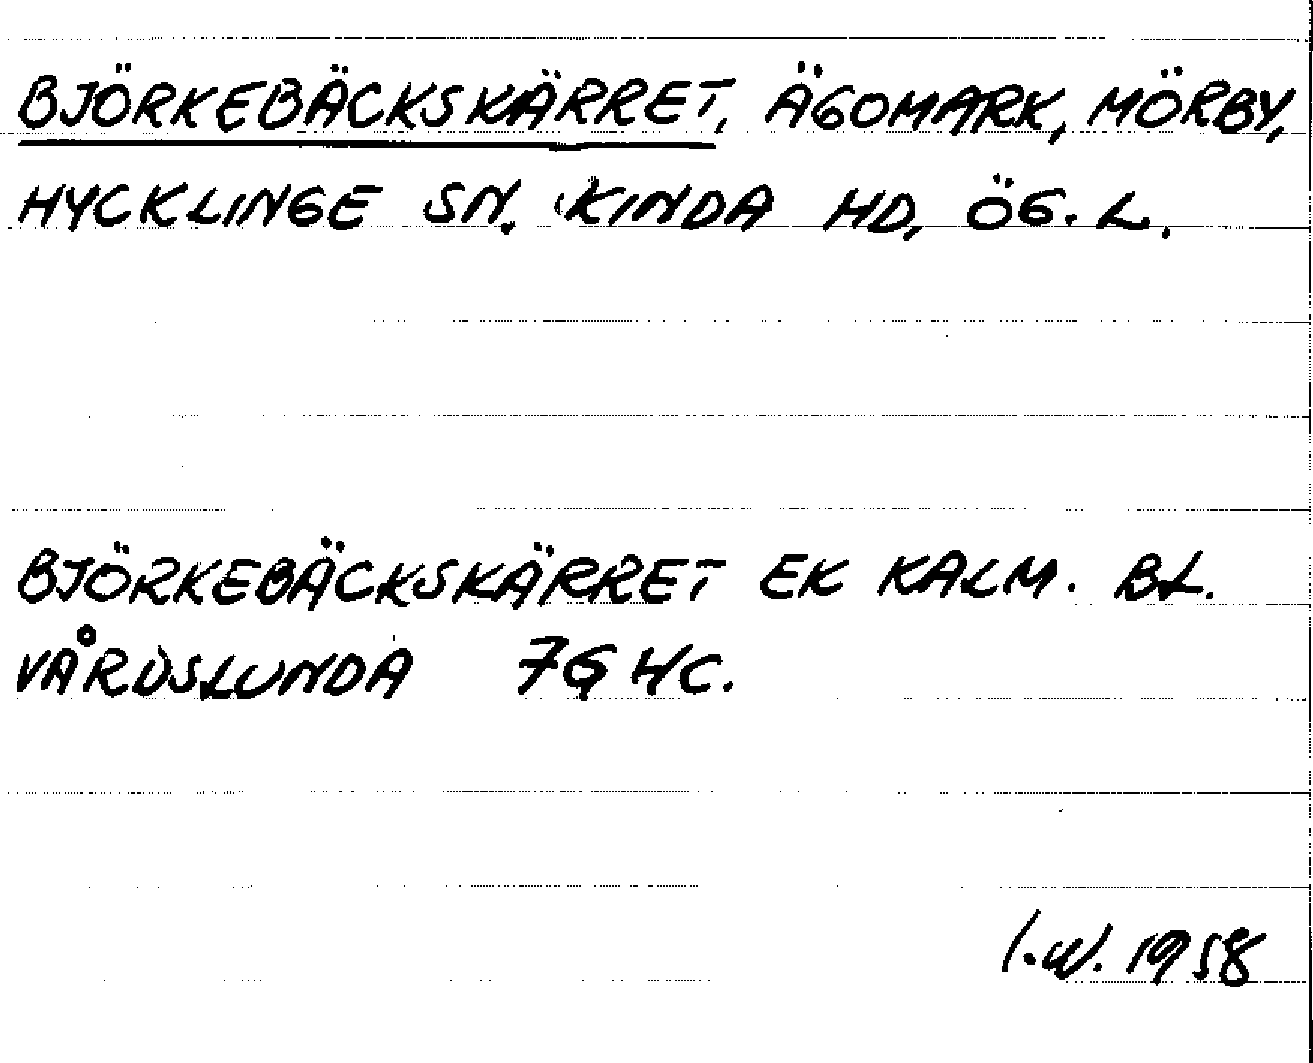 BJÖRKEBÄCKSKÄRRET, ÄGOMARK, MÖRBY,
HYCKLINGE SN. KINDA HD, ÖG. L.
BJÖRKEBÄCKSKÄRRET EK KALM. BL.
VÅRDSLUNDA 7G HC.
I.W. 1958